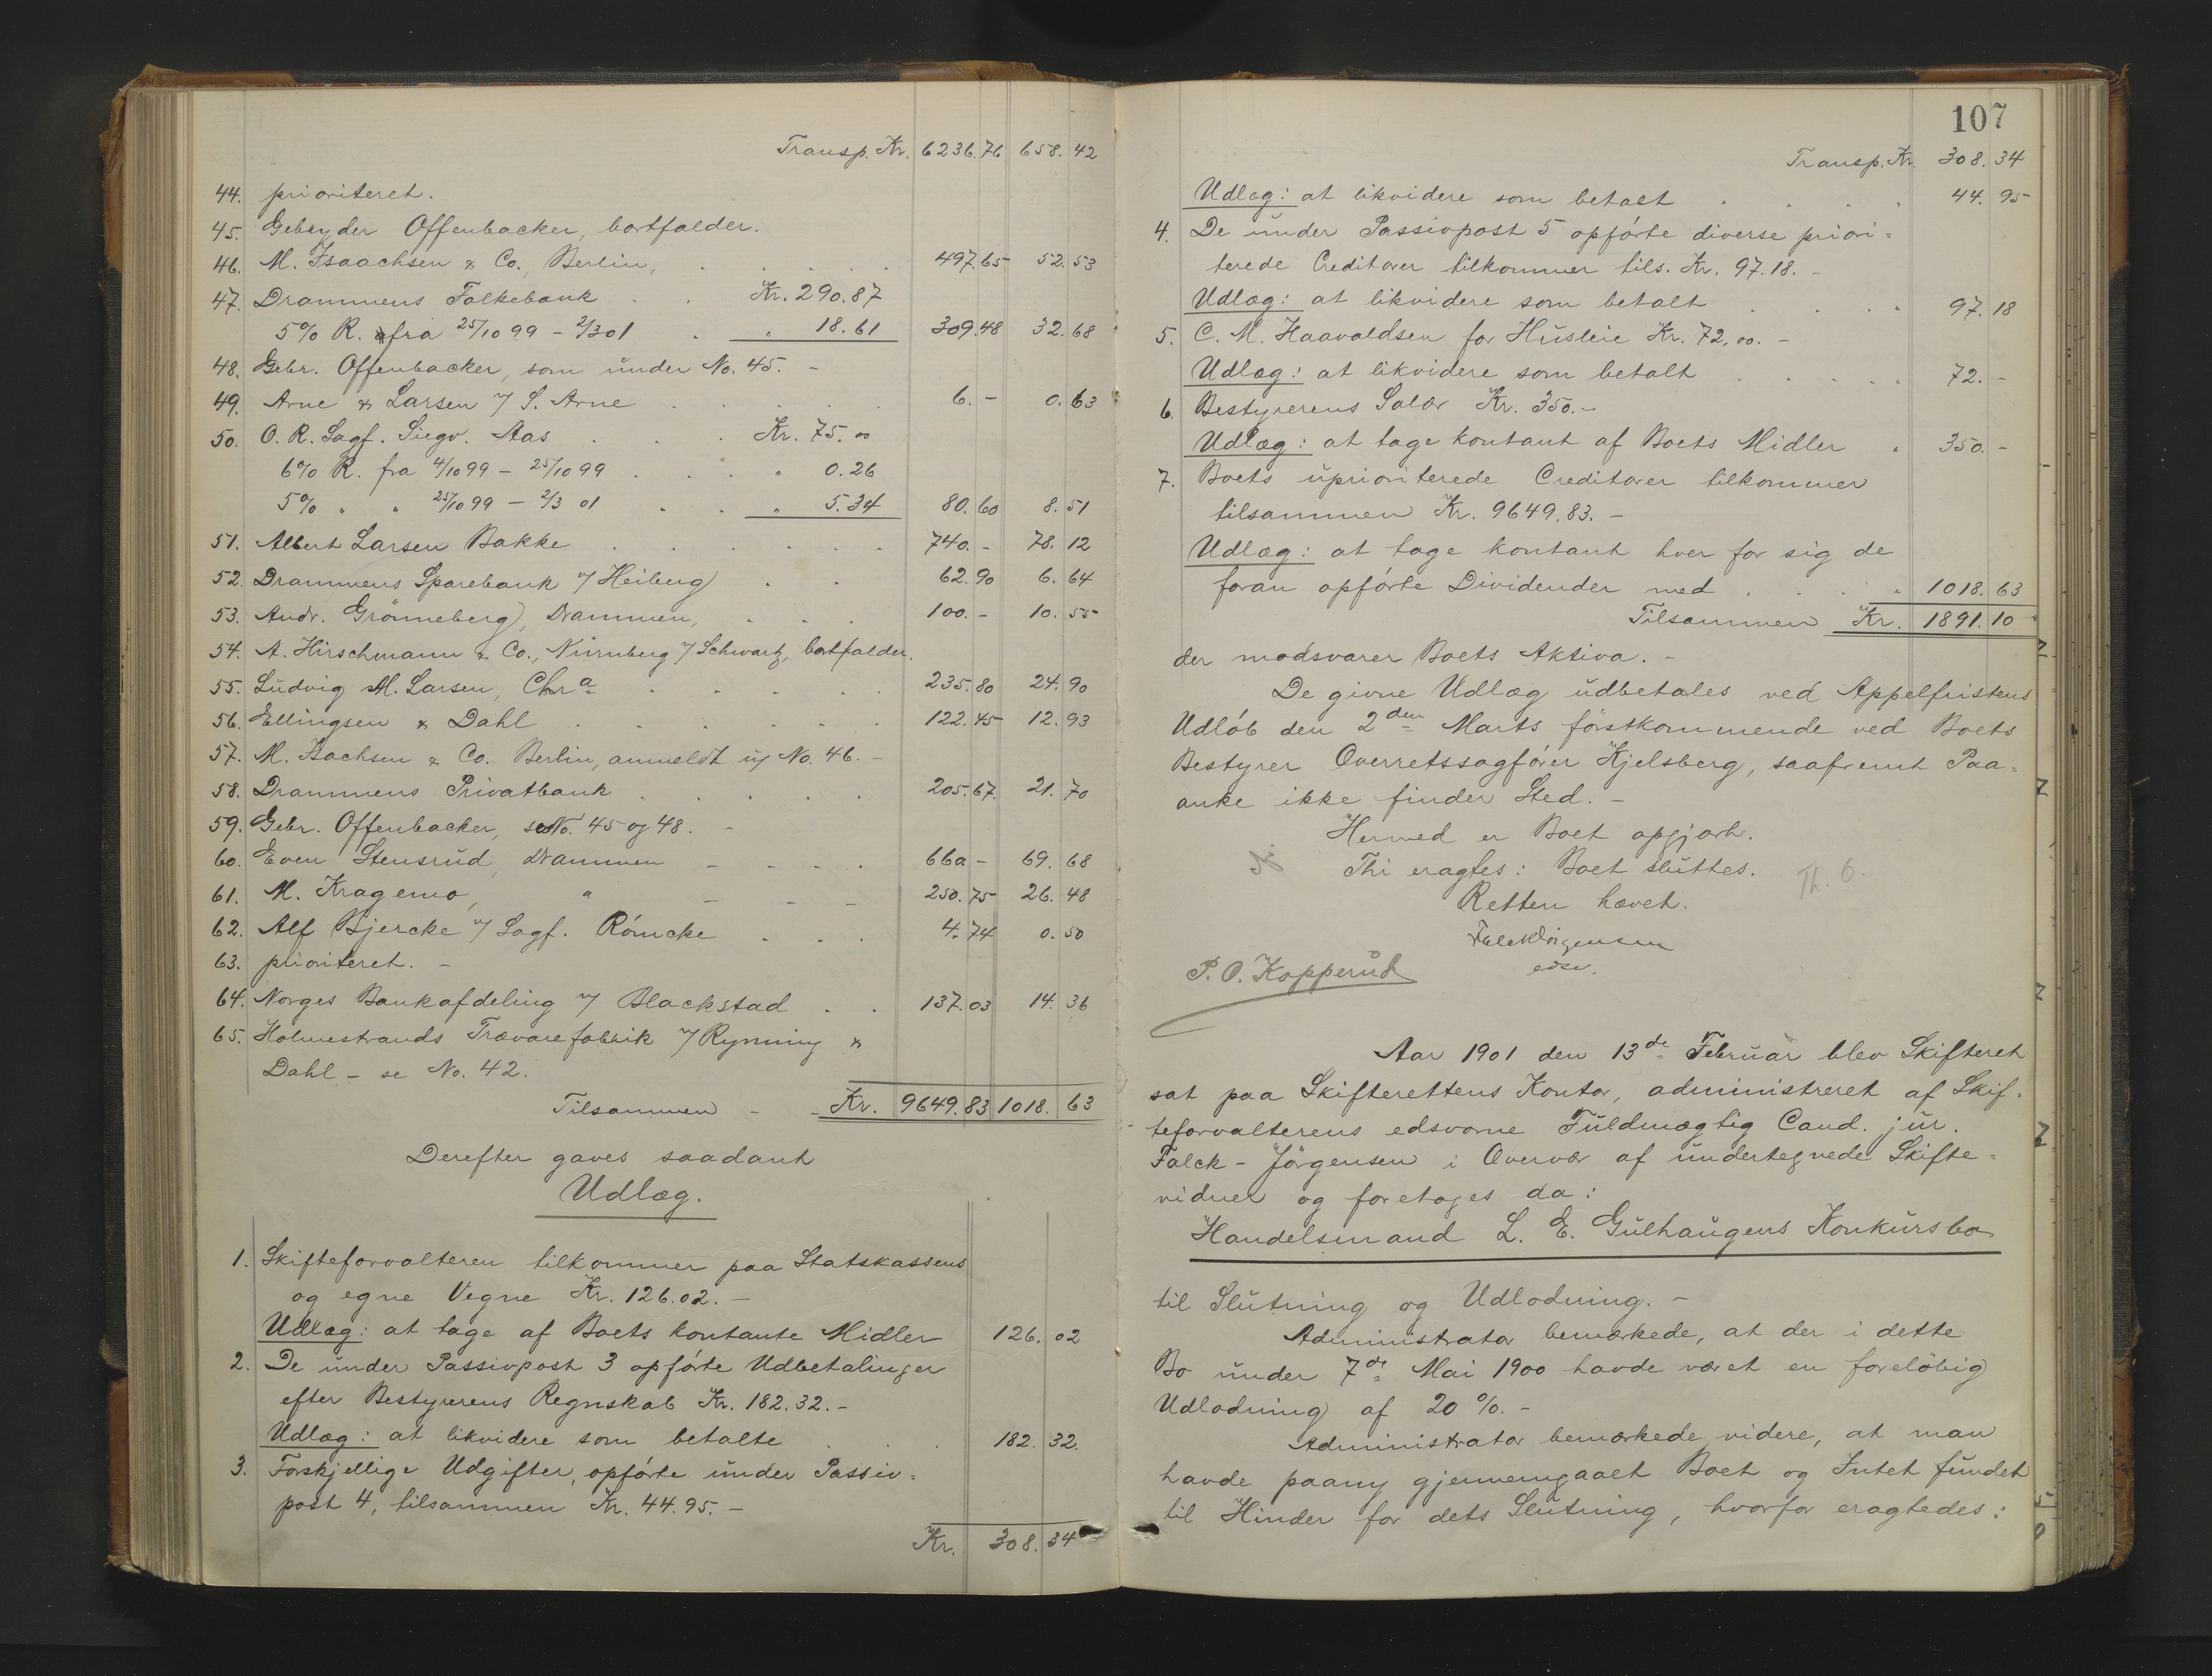 Transp. Kr. 6236.76 658.42
44. prioriteret.
45. Gebryder Offenbacker, bortfalder.
46. M. Isaachsen & Co., Berlin, . . . . . 497.65 52.53
47. Drammens Folkebank . . Kr. 290.87
5% R. fra 25/10 99 - 2/3 01 . " 18.61 309.48 32.68
48. Gebr. Offenbacker, som under No. 45. -
49. Arne & Larsen v/ S. Arne . . . . . 6.- 0.63
50. O. R. Sagf. Siegv. Aas . . . Kr. 75.00
6% R. fra 4/10 99 - 25/10 99 . . . " 0.26
5% " " 25/10 99 - 2/3 01 . . " 5.34 80.60 8.51
51. Albert Larsen Bakke . . . . . . 740.- 78.12
52. Drammens Sparebank v/ Heiberg . . 62.90 6.64
53. Andr. Grönneberg, Drammen, . . . 100.- 10.55
54. A. Hirschmann & Co., Nürnberg v/ Schwartz, bortfalder.
55. Ludvig M. Larsen, Chr.a . . . . . 235.80 24.90
56. Ellingsen & Dahl . . . . . . 122.45 12.93
57. M. Isachsen & Co. Berlin, anmeldt u/ No. 46. -
58. Drammens Privatbank . . . . . 205.67 21.70
59. Gebr. Offenbacker, se No. 45 og 48. -
60. Even Stensrud, Drammen - - - . 660 - 69.68
61. M. Kragemo, " - - - 250.75 26.48
62. Alf Bjercke v/ Sagf. Römcke . . . 4.74 0.50
63. prioriteret. -
64. Norges Bankafdeling v/ Blackstad . . 137.03 14.36
65. Holmestrands Trævarefabrik v/ Rynning &
Dahl - se No. 42.
Tilsammen - - Kr. 9649.83 1018.63
Derefter gaves saadant
Udlæg.
1. Skifteforvalteren tilkommer paa Statskassens
og egne Vegne Kr. 126.02. -
Udlæg: at tage af Boets kontante Midler 126.02
2. De under Passivpost 3 opförte Udbetalinger
efter Bestyrerens Regnskab Kr. 182.32. -
Udlæg: at likvidere som betalte . . . 182.32.
3. Forskjellige Udgifter, opförte under Passiv=
post 4, tilsammen Kr. 44.95. -
Kr. 308.34
107
Transp. Kr. 308.34
Udlæg: at likvidere som betalt . . . " 44.95
4. De under Passivpost 5 opförte diverse priori=
terede Creditorer tilkommer tils. Kr. 97.18. -
Udlæg: at likvidere som betalt . . . " 97.18
5. C. M. Haavaldsen for Husleie Kr. 72,00. -
Udlæg: at likvidere som betalt . . . . " 72. -
6. Bestyrerens Salær Kr. 350. -
Udlæg: at tage kontant af Boets Midler " 350. -
7. Boets uprioriterede Creditorer tilkommer
tilsammen Kr. 9649.83. -
Udlæg: at tage kontant hver for sig de
foran opförte Dividender med . . . " 1018.63
Tilsammen Kr. 1891.10
der modsvarer Boets Aktiva. -
De givne Udlæg udbetales ved Appelfristens
Udløb den 2den Marts förstkommende ved Boets
Bestyrer Overretssagförer Hjelsberg, saafremt Paa=
anke ikke finder Sted. -
Hermed er Boet opgjort.
Thi eragtes: Boet sluttes. Th. O.
Retten hævet.
Falck Jörgensen
edsv.
P. O. Kopperud
Aar 1901 den 13de Februar blev Skifteret
sat paa Skifterettens Kontor, administreret af Skif=
teforvalterens edsvorne Fuldmægtig Cand. jur.
Falck-Jörgensen i Overvær af undertegnede Skifte=
vidner og foretages da:
Handelsmand L. E. Gulhaugens Konkursbo
til Slutning og Udlodning. -
Administrator bemærkede, at der i dette
Bo under 7de Mai 1900 havde været en forelöbig
Udlodning af 20 %. -
Administrator bemærkede videre, at man
havde paany gjennemgaaet Boet og Intet fundet
til Hinder for dets Slutning, hvorfor eragtedes: